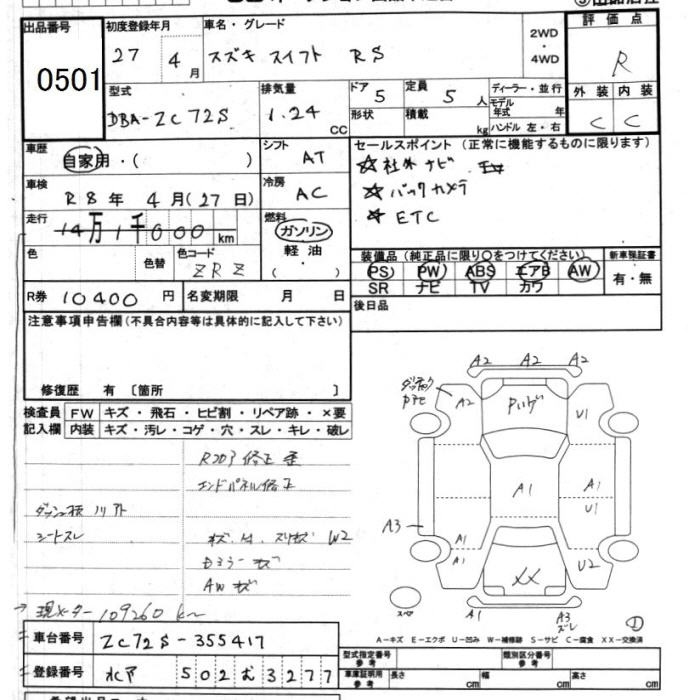 出品番号
0501
初度登録年月
27年 4月
車名・グレード
スズキ スイフト RS
2WD
・
4WD
評価点
R
外装 内装
C C
型式
DBA-ZC72S
排気量
1.24
CC
ドア 5
定員 5 人
形状
積載 kg
ディーラー・並行
モデル年式 年
ハンドル 左・右
車歴
自家用・( )
シフト
AT
車検
R8年 4月(27日)
冷房
AC
走行
14万1千000km
燃料
ガソリン
軽油
・
( )
色
色替
色コード
ZRZ
セールスポイント(正常に機能するものに限ります)
☆社外ナビ
☆バックカメラ
☆ETC
装備品(純正品に限り○をつけてください)
新車保証書
PS PW ABS エアB AW
SR ナビ TV カワ
有・無
R券 10400円
名変期限 月 日
後日品
注意事項申告欄(不具合内容等は具体的に記入して下さい)
修復歴 有 〔箇所 〕
検査員記入欄
FW キズ・飛石・ヒビ割・リペア跡・×要
内装 キズ・汚レ・コゲ・穴・スレ・キレ・破レ
エンドパネル修正
シートスレ
W2
AWキズ
→現メーター109260km
A2 A2 A2
A2
U1
A1
A1
U1
A3
A1
A1
XX
U2
A1
A3
スレ
スペア
①
A-キズ E-エクボ U-凹み W-補修跡 S-サビ C-腐食 XX-交換済
車台番号
ZC72S-355417
登録番号
水戸 502む3277
型式指定番号 参考
類別区分番号 参考
車庫証明用 参考
長さ cm
幅 cm
高さ cm